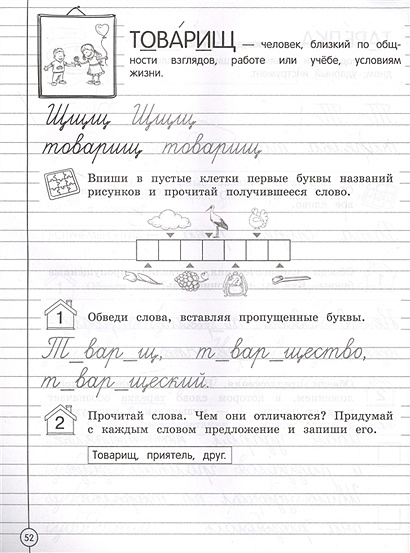 ТОВА́РИЩ — человек, близкий по общ-
ности взглядов, работе или учёбе, условиям
жизни.
Щщщ Щщщ
товарищ товарищ
Впиши в пустые клетки первые буквы названий
рисунков и прочитай получившееся слово.
1 Обведи слова, вставляя пропущенные буквы.
Т_вар_щ, т_вар_щество,
т_вар_щеский.
2 Прочитай слова. Чем они отличаются? Придумай
с каждым словом предложение и запиши его.
Товарищ, приятель, друг.
52